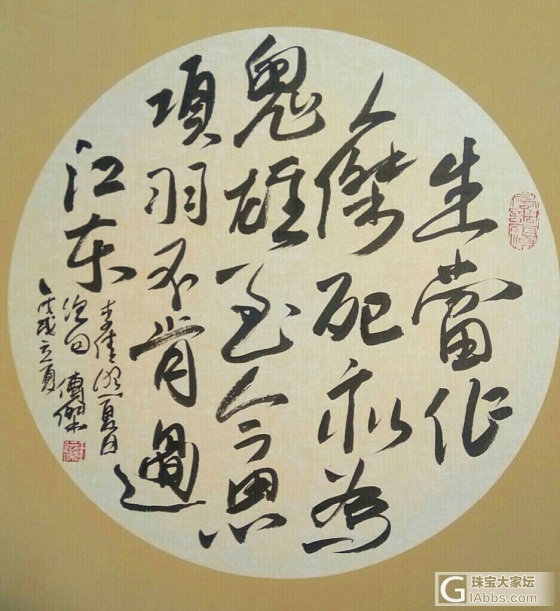 生當作
人傑死亦為
鬼雄至今思
項羽不肯過
江东
李清照夏日
绝句
戊戌立夏
珠宝大家坛
GIAbbs.com